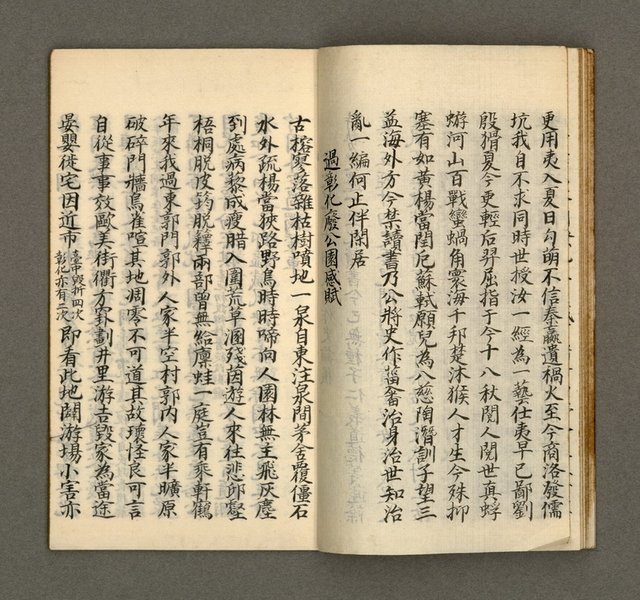 更用夷入夏日勾萌不信秦灰遺禍火至今商洛發儒
坑我自不求同時世授汝一經為一藝仕夷早已鄙劉
殷猾夏今更輕后羿屈指于今十八秋閱人閱世真蜉
蝣河山百戰蠻蝸角寰海千邦楚沐猴人才生今殊抑
塞有如黃楊當閏厄蘇軾願兒為公慈陶潛訓子望三
益海外方今禁讀書乃公將史作菑畬治身治世知治
亂一編何止伴閑居
過彰化廢公園感賦
古榕寥落雜枯樹墳地一泉自東注泉間茅舍覆僵石
水外疏楊當狹路野鳥時時啼向人園林無主飛灰塵
到處病藜成瘦腊入園荒草涸殘茵遊人來往悲邱壑
梧桐脫皮葯脫籜兩部曾無給廩蛙一庭豈有乘軒鶴
年來我過東郭門郭外人家半空村郭內人家半曠原
破碎門牆鳥雀喧其地凋零不可道其故瓌怪良可言
自從事事效歐美街衢方罫劃井里游吉毀家為當途
晏嬰徙宅因近市臺中毀折四次彰化亦有二次即看此地闢游場小害亦